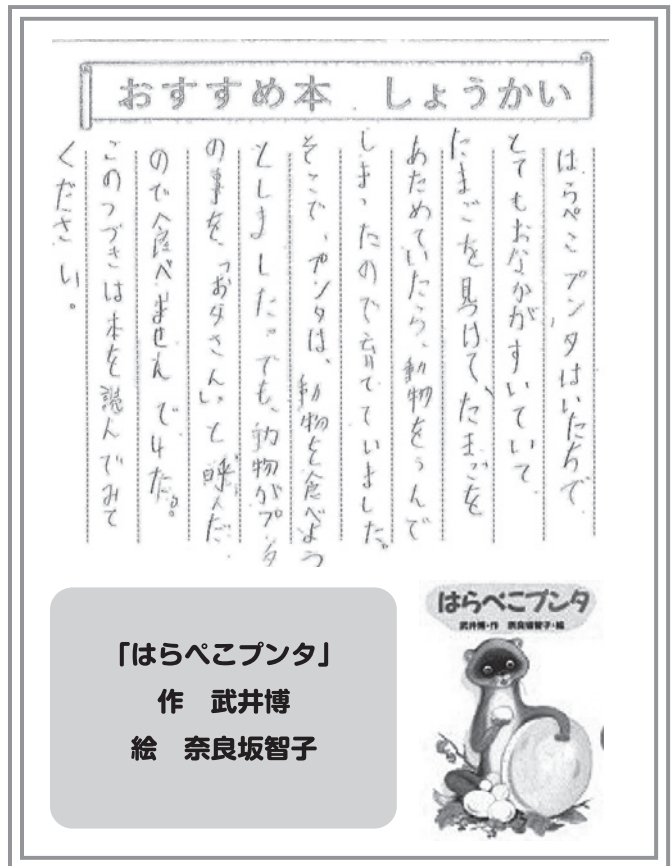 おすすめ本 しょうかい
はらぺこプンタはいたちで、
とてもおなかがすいていて、
たまごを見つけて、たまごを
あたためていたら、動物をうんで
しまったので育てていました。
そこで、プンタは、動物を食べよう
としました。でも、動物がプンタ
の事を、「お父さん」と呼んだ
ので食べませんでした。
このつづきは本を読んでみて
ください。
「はらぺこプンタ」
作 武井博
絵 奈良坂智子
はらぺこプンタ
武井博・作 奈良坂智子・絵